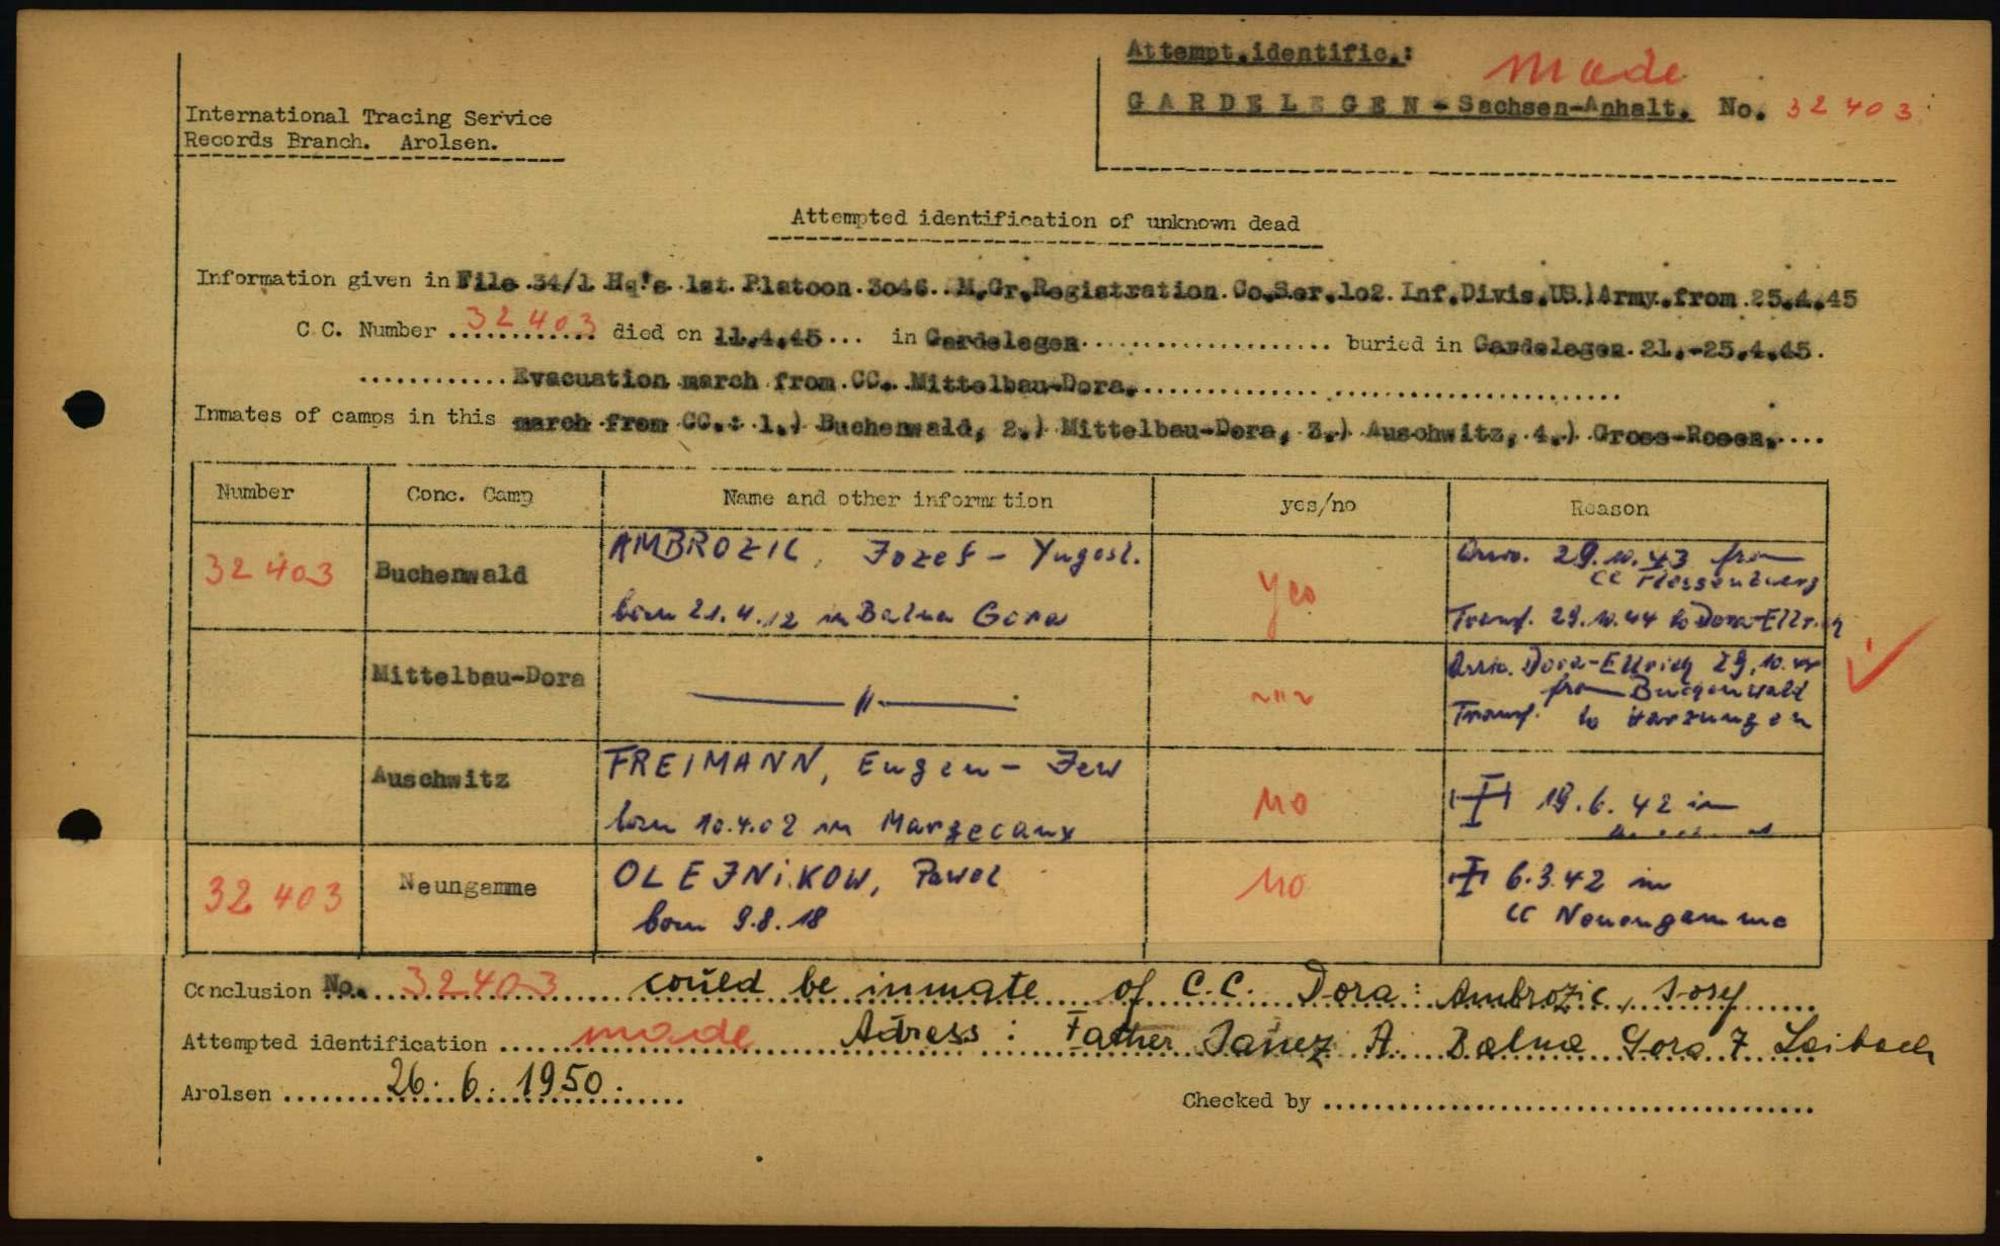 Attempt.identific.: made
GARDELEGEN - Sachsen-Anhalt. No. 32403
International Tracing Service
Records Branch. Arolsen.
Attempted identification of unknown dead
Information given in File 34/1 Hq's 1st Platoon 3046. M.Gr.Registration Co.Ser.102 Inf.Divis.US.)Army.from 25.4.45
C.C. Number 32403 died on 11.4.45... in Gardelegen buried in Gardelegen 21.-25.4.45.
Evacuation march from CC. Mittelbau-Dora.
Inmates of camps in this march from CC.: 1.) Buchenwald, 2.) Mittelbau-Dora, 3.) Auschwitz, 4.) Gross-Rosen.
Number Conc. Camp Name and other information yes/no Reason
32403 Buchenwald AMBROZIC, Jozef - Yugosl. yes Arriv. 29.10.43 from
CC Flossenburg
born 21.4.12 in Balna Gora Transf. 29.10.44 to Dora-Ellrich
Mittelbau-Dora — " — ~"~ Arriv. Dora-Ellrich 29.10.44
from Buchenwald
Transf. to Harzungen
Auschwitz FREIMANN, Eugen - Jew no 19.6.42 in
born 10.4.02 in Margecany
32403 Neungamme OLEJNIKOW, Pawel no 6.3.42 in
born 9.8.18 CC Neuengamme
Conclusion No. 32403 could be inmate of C.C. Dora: Ambrozic, Josef
Attempted identification made Adress: Father Janez A. Balna Gora 7 Laibach
Arolsen 26. 6. 1950. Checked by